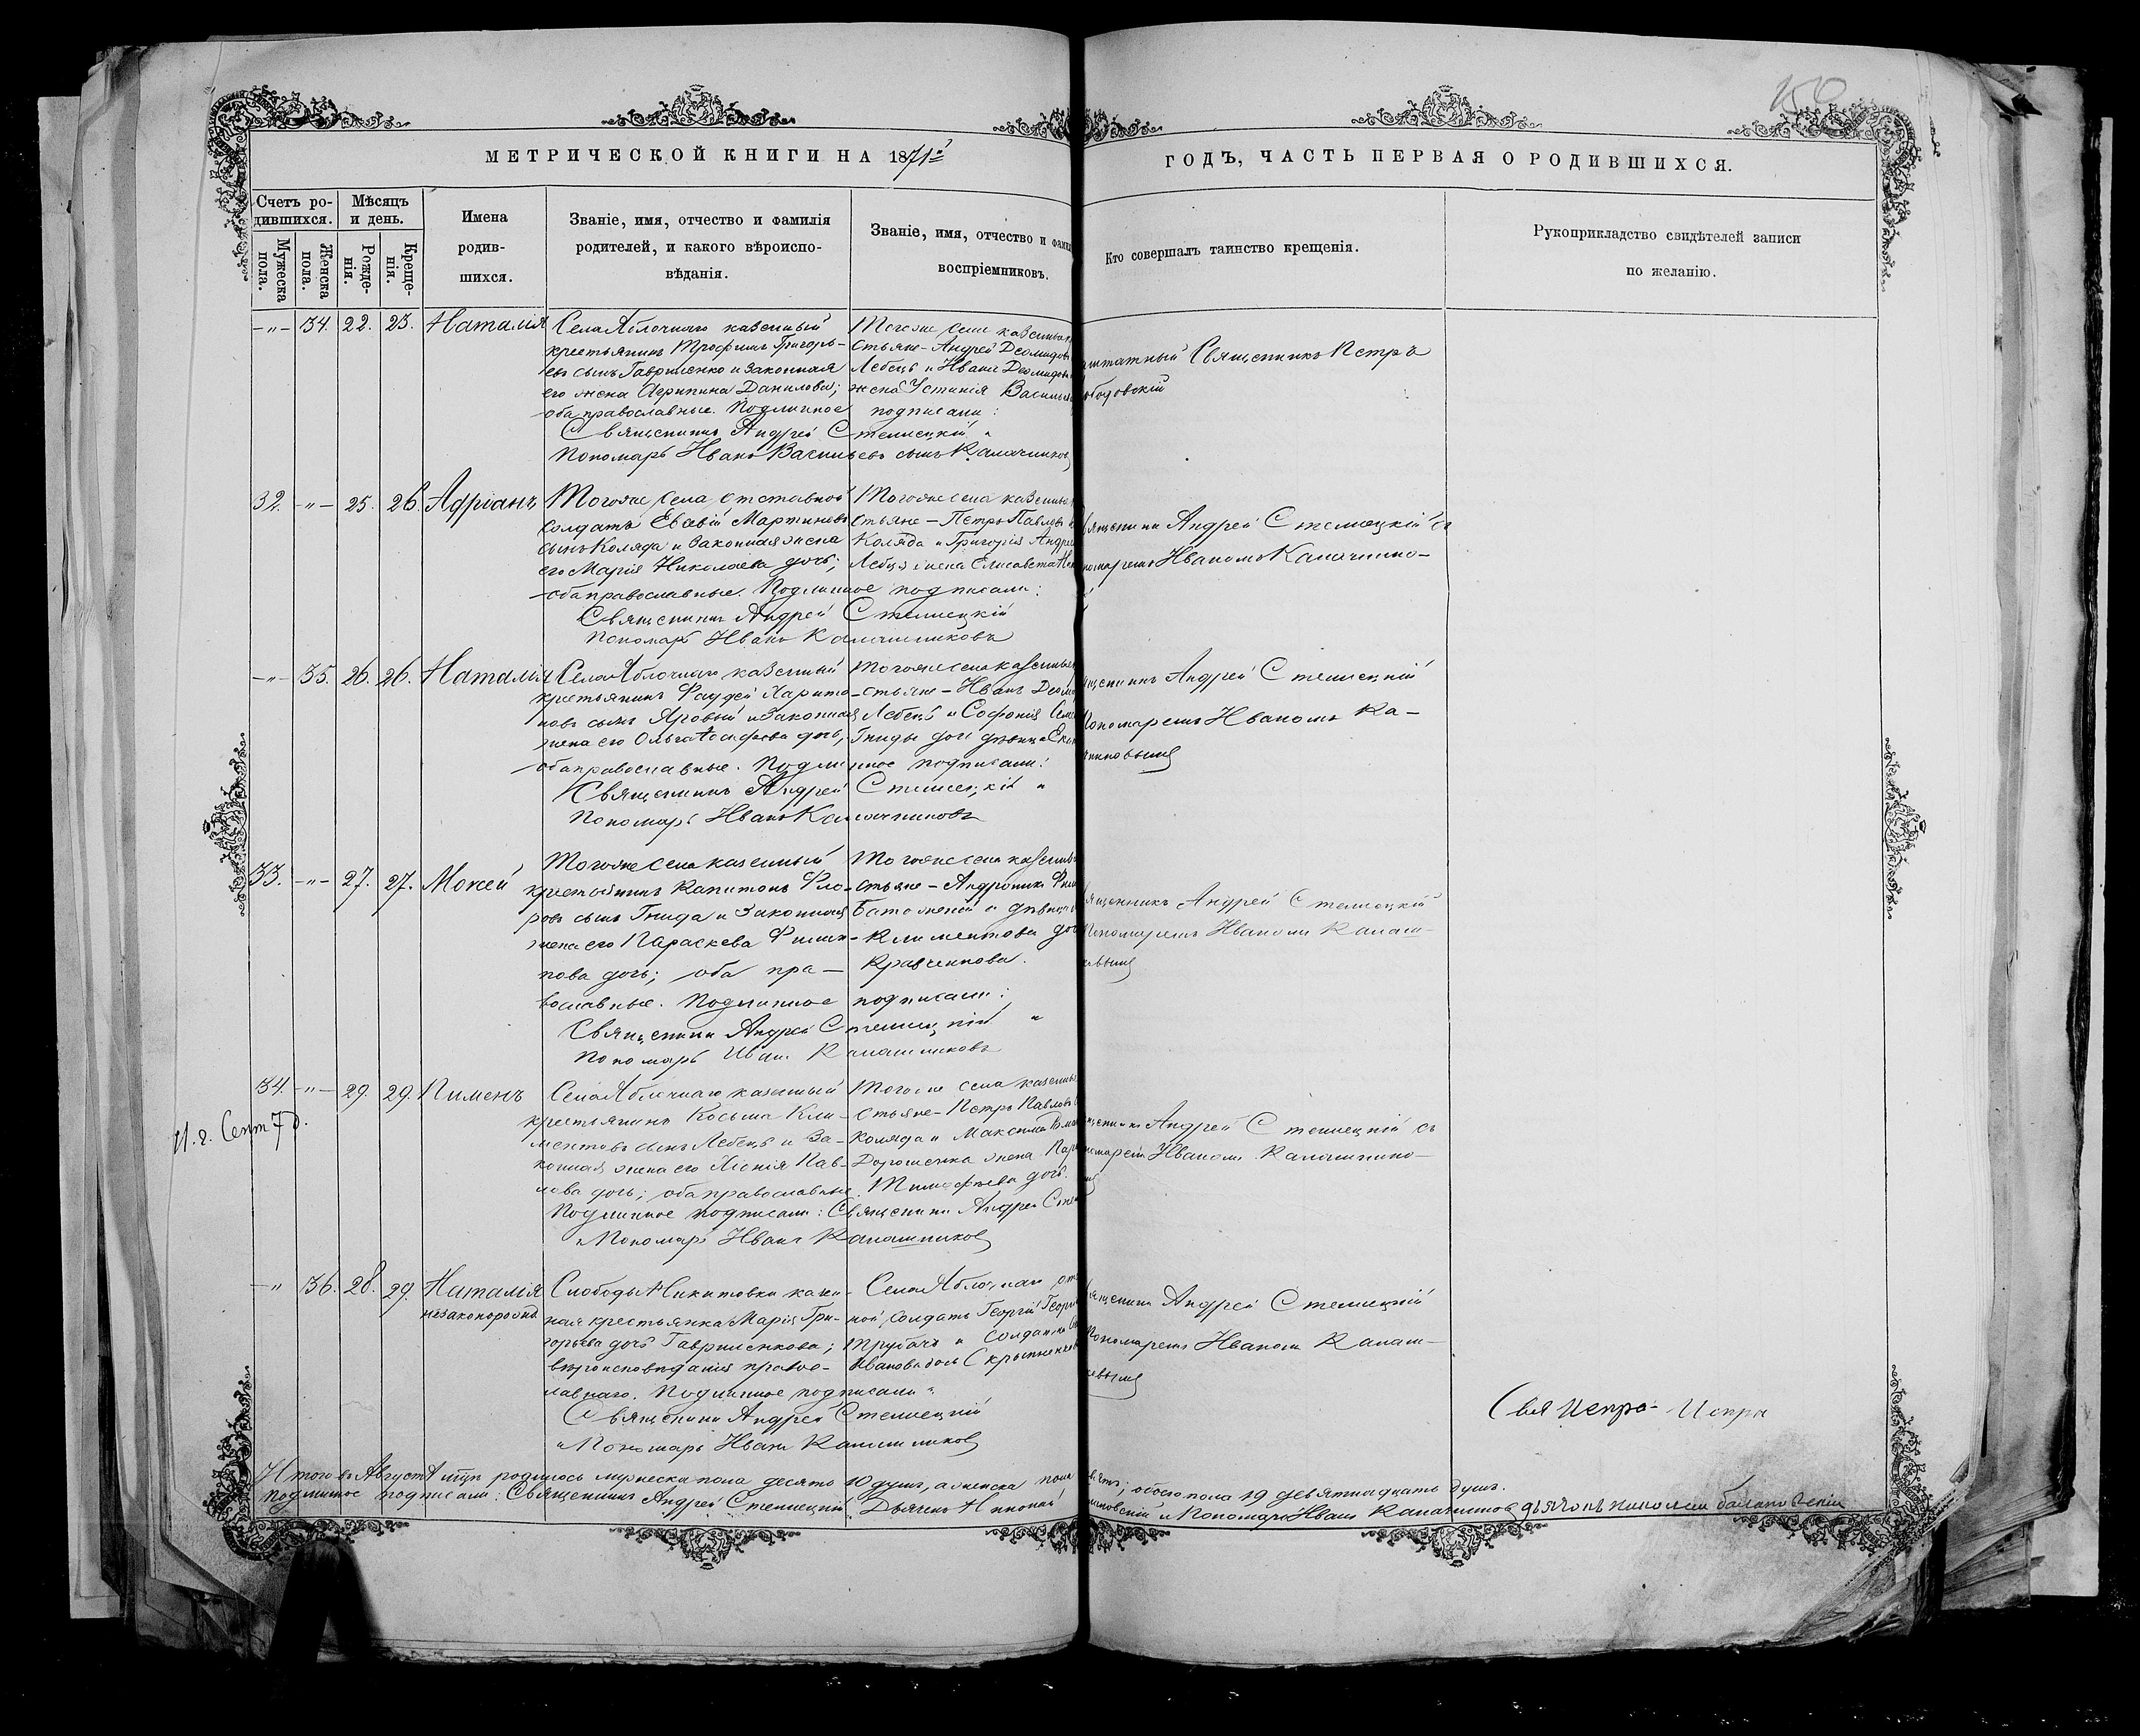 156
МЕТРИЧЕСКОЙ КНИГИ НА 1871й
ГОДЪ, ЧАСТЬ ПЕРВАЯ О РОДИВШИХСЯ.
Счетъ ро-
дившихся.
Мѣсяцъ
и день.
Мужеска
пола.
Женска
пола.
Рожде-
нія.
Креще-
нія.
Имена
родив-
шихся.
Званіе, имя, отчество и фамилія
родителей, и какого вѣроиспо-
вѣданія.
Званіе, имя, отчество и фами
воспріемниковъ.
Кто совершалъ таинство крещенія.
Рукоприкладство свидѣтелей записи
по желанію.
-"- 34. 22. 23. Наталія
Села Яблочнаго казенный
крестьянинъ Трофимъ Григорь-
евъ сынъ Гавриленко и законная
его жена Агрипина Данилова;
оба православные. Подлинное подписали:
Священникъ Андрей Стеллецкій и
Пономарь Иванъ Васильевъ сынъ Калашников
Тогоже села казенные
стьяне - Андрей Деомидов
Лебецъ и Ивана Деомидов
жена Устинія Василье
штатный Священникъ Петръ
32. -"- 25. 26. Адріанъ
Тогоже села отставной
солдатъ Евсевій Мартиновъ
сынъ Коляда и законная жена
его Марія Николаева дочь;
оба православные. Подлинное подписали:
Священникъ Андрей Стеллецкій
Пономарь Иванъ Калашниковъ
Тогоже села казенные
стьяне - Петръ Павловъ
Коляда и Григорія Андре
Лебця жена Елисавета
вященникъ Андрей Стеллецкій съ
номаремъ Иваномъ Калашнико-
-"- 35. 26. 26. Наталія
Села Яблочнаго казенный
крестьянинъ Фаддей Харито-
новъ сынъ Яровый и законная
жена его Ольга Іосифова дочь;
оба православные. Подлинное подписали:
Священникъ Андрей Стеллецкій и
Пономарь Иванъ Калашниковъ
Тогоже села казенные
стьяне - Иванъ Деоми
Лебецъ и Софонія Семе
Гниды дочь дѣвица
щенникъ Андрей Стеллецкій
Пономаремъ Иваномъ Ка-
никовымъ
33. -"- 27. 27. Моисей
Тогоже села казенный
крестьянинъ Капитонъ Фло-
ровъ сынъ Гнида и законная
жена его Параскева Филип-
пова дочь; оба пра-
вославные. Подлинное подписали:
Священникъ Андрей Стеллецкій и
Пономарь Иванъ Калашниковъ
Тогоже села казенные
стьяне - Андроникъ
Батоженой и дѣвица
Климентова доч
Кравченкова.
ященникъ Андрей Стеллецкій
Пономаремъ Иваномъ Калаш-
евымъ
34. -"- 29. 29. Пименъ
Села Яблочнаго казенный
крестьянинъ Косьма Кли-
ментовъ сынъ Лебецъ и за-
конная жена его Ксенія Пав-
лова дочь; оба православные.
Подлинное подписали: Священникъ Андрей Стел
и Пономарь Иванъ Калашников
Тогоже села казенные
стьяне - Петръ Павловъ
Коляда и Максима
Дорошенка жена
Тимофѣева дочь.
щенникъ Андрей Стеллецкій съ
номаремъ Иваномъ Калашнико-
Сент 7 д.
-" 36. 28. 29. Наталія
незаконорожд
Слободы Никитовки казен-
ная крестьянка Марія Гри-
горьева дочь Гавриленкова;
вѣроисповѣданія правос-
лавнаго. Подлинное подписали:
Священникъ Андрей Стеллецкій
и Пономарь Иванъ Калашников
Села Яблочнаго от
ной солдатъ Георгій Георгі
Трубачъ и солдатка
Иванова дочь Скрыпненков
ященникъ Андрей Стеллецкій
Пономаремъ Иваномъ Калаш-
евымъ
Итого въ Августѣ мцѣ родилось мужеска пола десять 10 душъ, а женска пола
вять; обоего пола 19 девятнадцать душъ.
Подлинное подписали: Священникъ Андрей Стеллецкій. Дьячекъ
и Пономарь Иванъ Калашников